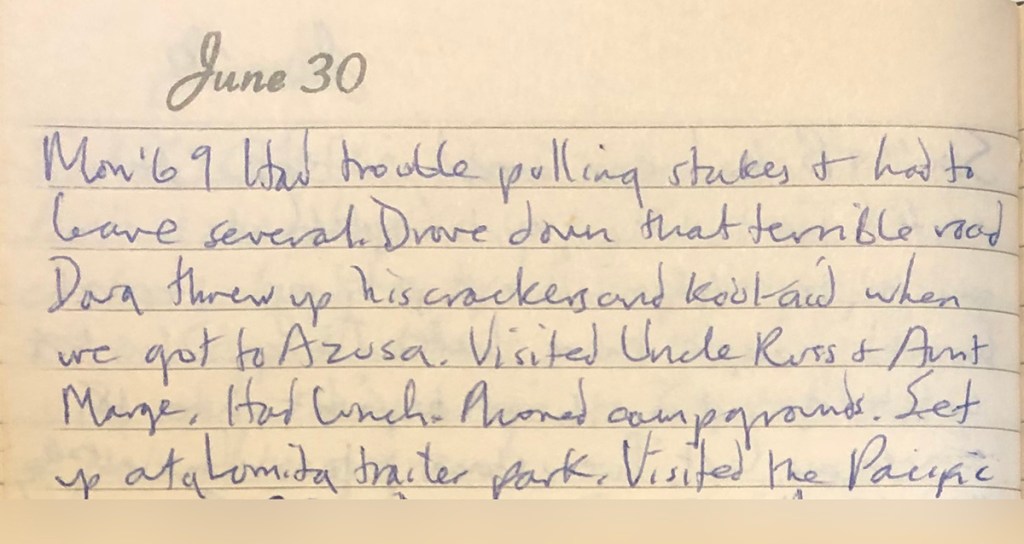 June 30
Mon '69 Had trouble pulling stakes + had to
leave several. Drove down that terrible road
threw up his crackers and kool-aid when
we got to Azusa. Visited Uncle Russ + Aunt
Marge. Had lunch. Phoned campgrounds. Set
up at a Lomita trailer park. Visited the Pacific